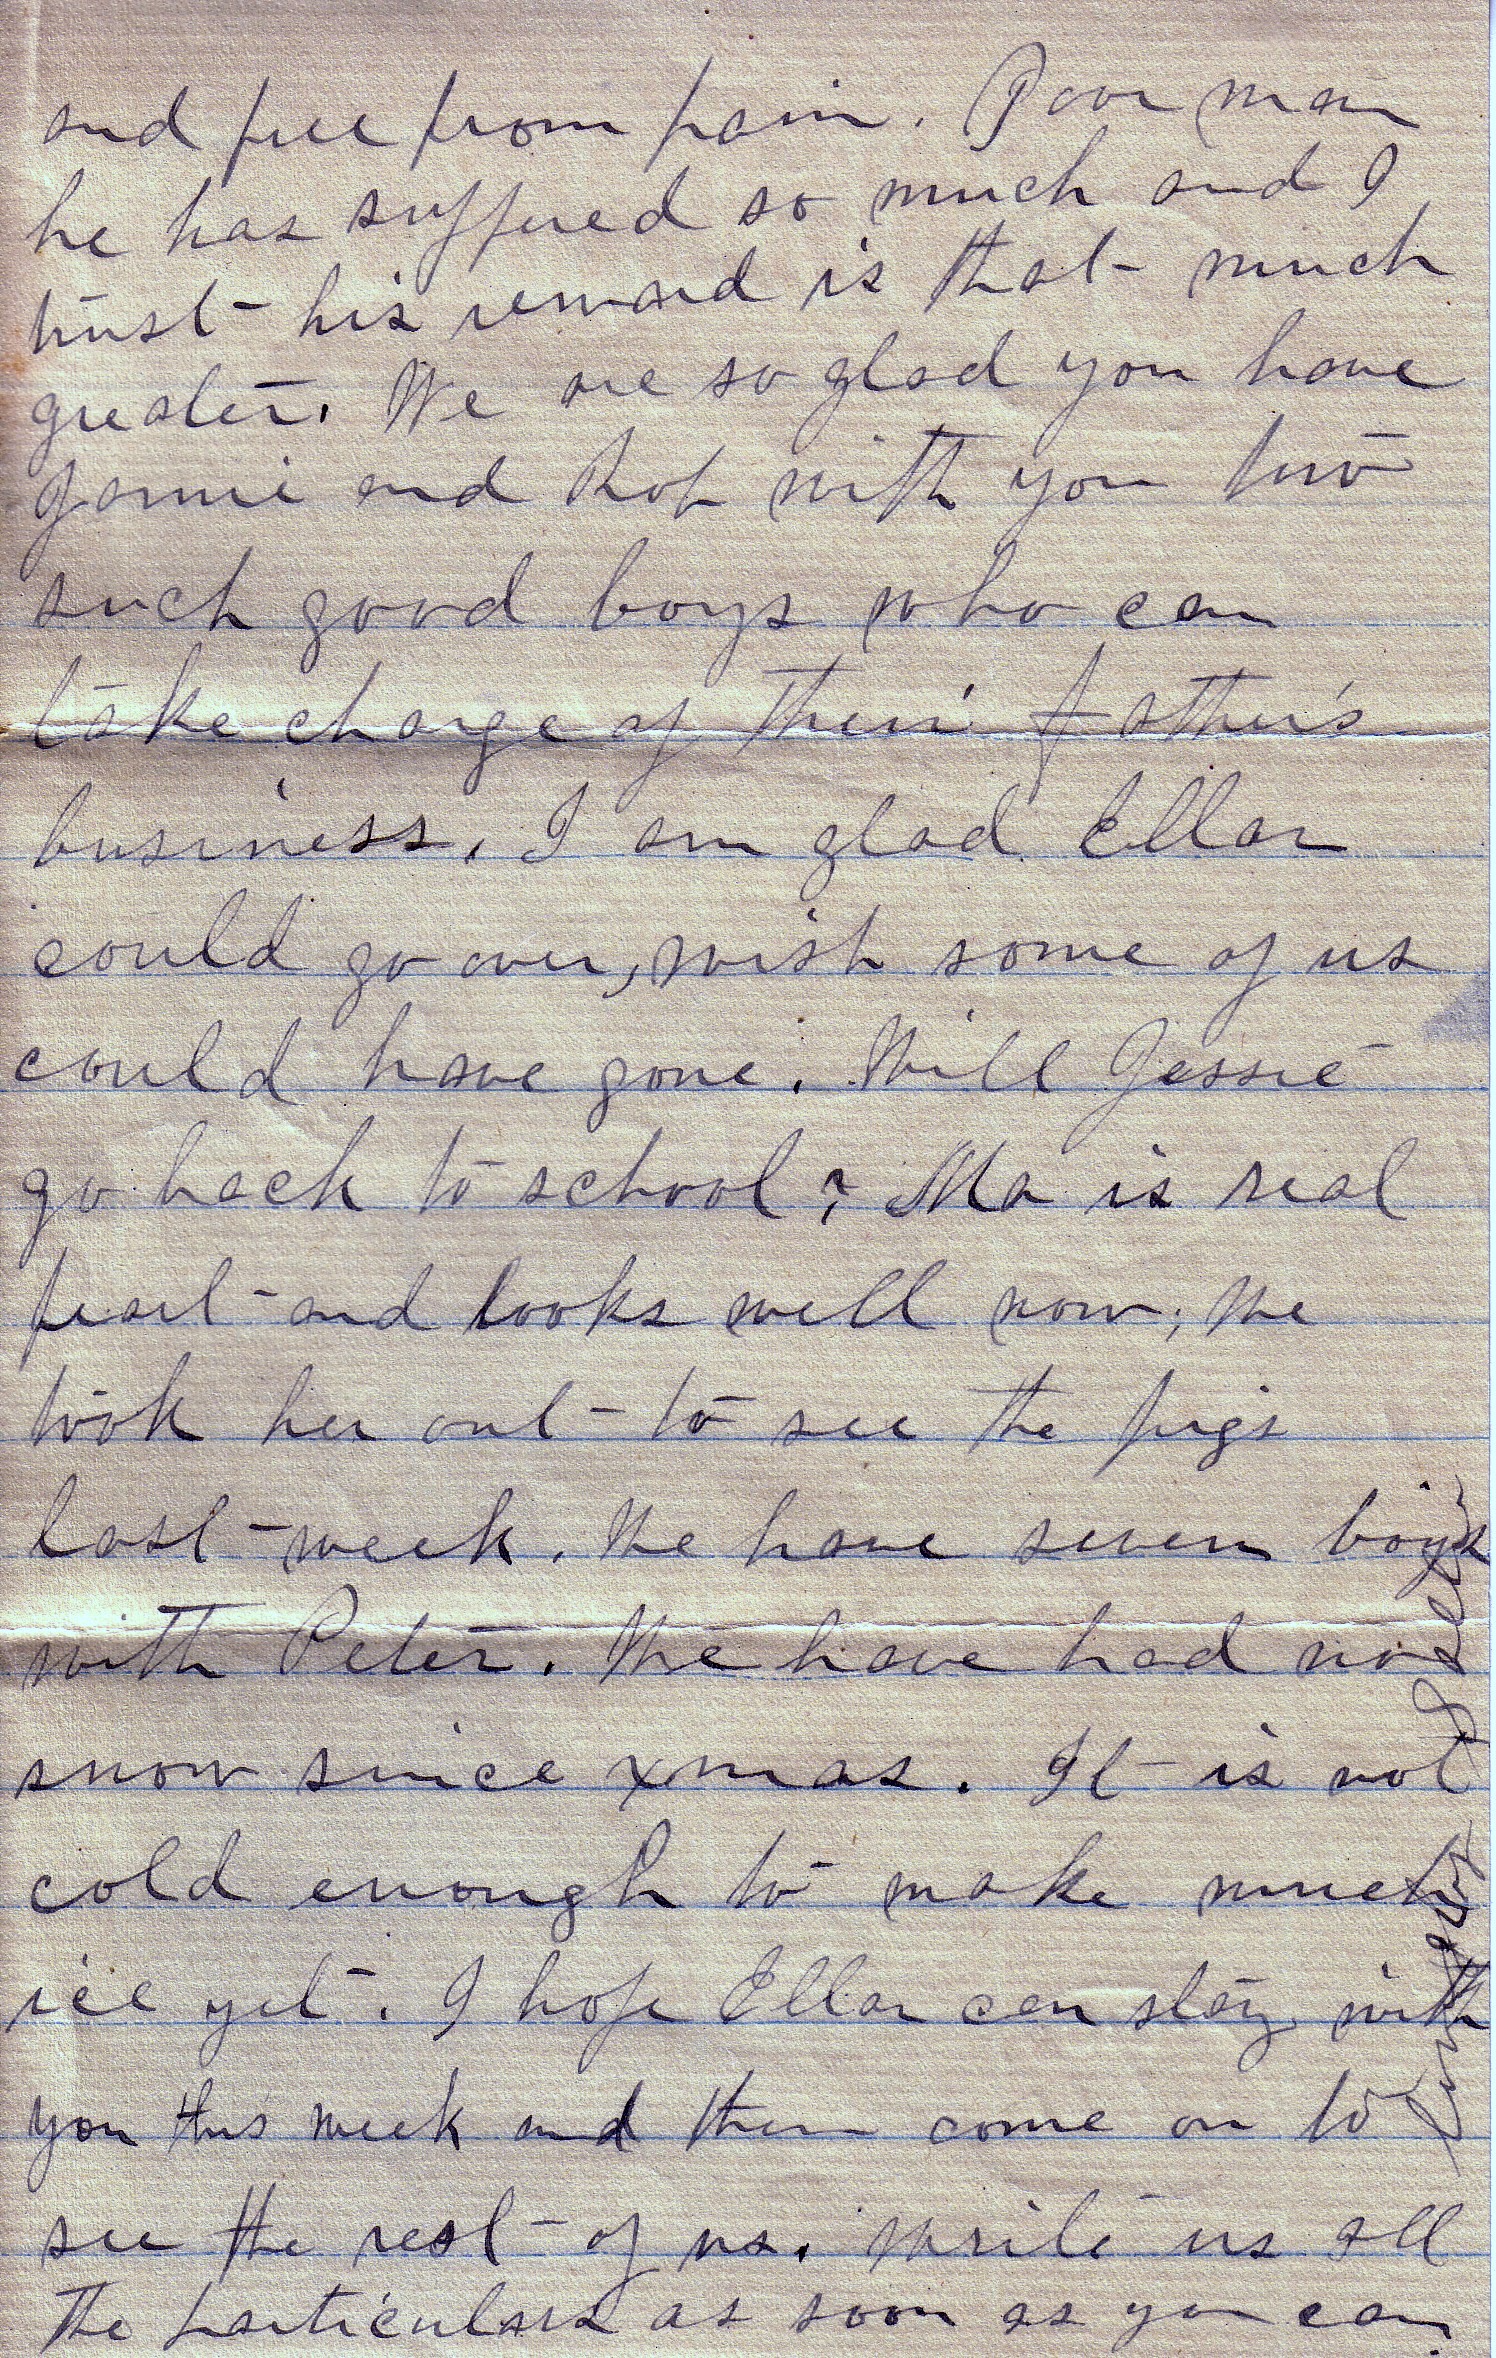 and free from pain. Poor man
he has suffered so much and I
trust his reward is that much
greater. We are so glad you have
Jamie and Rob with you two
such good boys who can
take charge of their father's
business. I am glad Ellar
could go over, wish some of us
could have gone. Will Jessie
go back to school? Ma is real
peart and looks well now, We
took her out to see the pigs
last week. We have seven boys
with Peter. We have had no
snow since xmas. It is not
cold enough to make much
ice yet. I hope Ellar can stay with
you this week and then come on to
see the rest of us. Write us all
the particulars as soon as you can